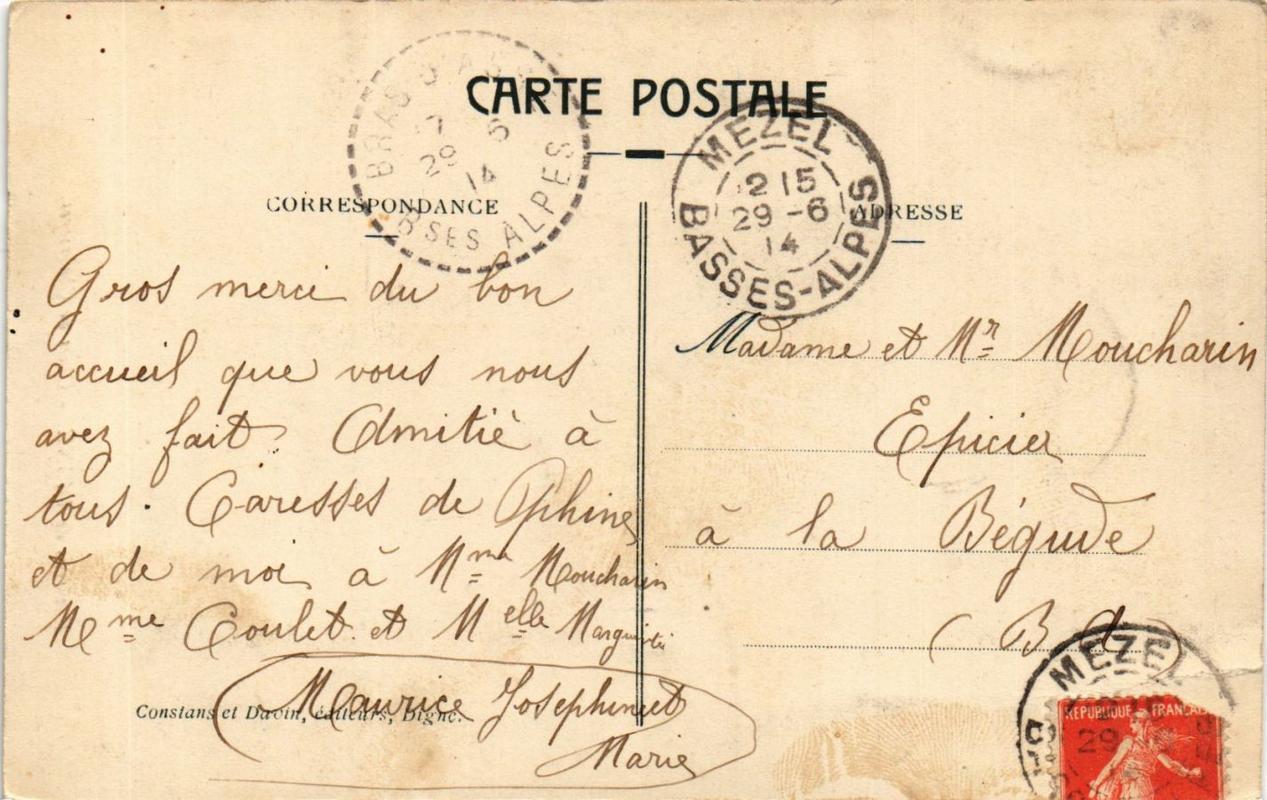 CARTE POSTALE
BRAS D'ASSE
17 6
29
14
BSES ALPES
MEZEL
2 15
29 -6
14
BASSES-ALPES
CORRESPONDANCE
ADRESSE
Gros merci du bon
accueil que vous nous
avez fait. Amitié à
tous. Caresses de Phine
et de moi à Mme Moucharin
Mme Coulet et Melle
Maurice Josephine et
Marie
Constans et Davin, éditeurs, Digne.
Madame et Mr Moucharin
Epicier
à la Bégude
(B A)
MEZEL
29
REPUBLIQUE FRANÇAI